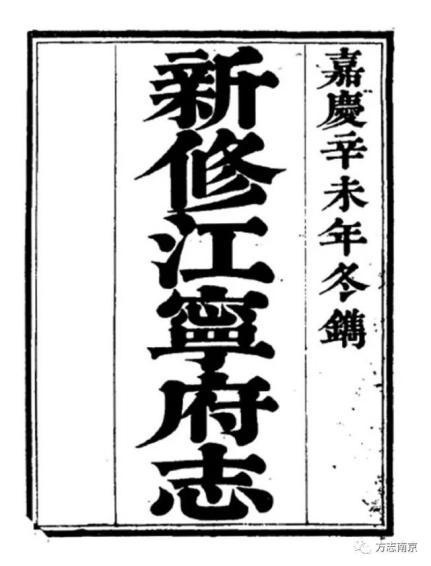 嘉慶辛未年冬鐫
新修江寧府志
方志南京